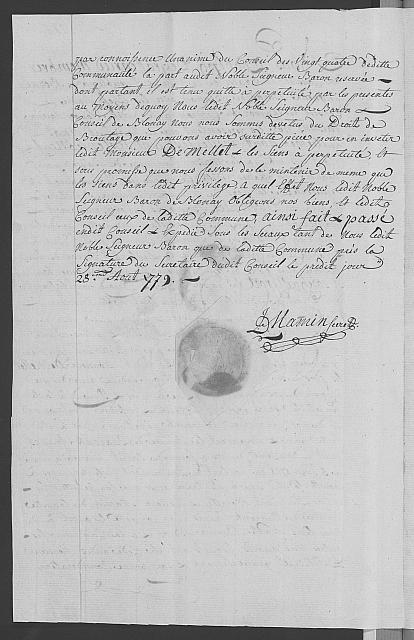 par connoissence Unanime du Conseil des Vingt quatre deditte
Communauté la part audit Noble Seigneur Baron reservée
dont partant, il est tenu quitte à perpetuité par les presentes
au Moyens dequoy Nous ledit Noble Seigneur Baron &
Conseil de Blonay nous nous Sommes devetus du Droits de
Broutage que pouvons avoir surditte piece pour en invetir
ledit Monsieur De Mellet & les Siens à perpetuite, &
sous promesse que nous fessons de le mintenir de meme que
les Siens dans ledit privilege a quel Effet Nous ledit Noble
Seigneur Baron de Blonay Obligeons nos biens, & ledit
Conseil ceux de laditte Commune, ainsi fait & passé
endit Conseil & Expedié Sous les Sceaux tant de Nous ledit
Noble Seigneur Baron que de laditte Commune près la
Signature du Secretaire dudit Conseil le predit jour
28.me Aout 1779.
Mamin Secret.